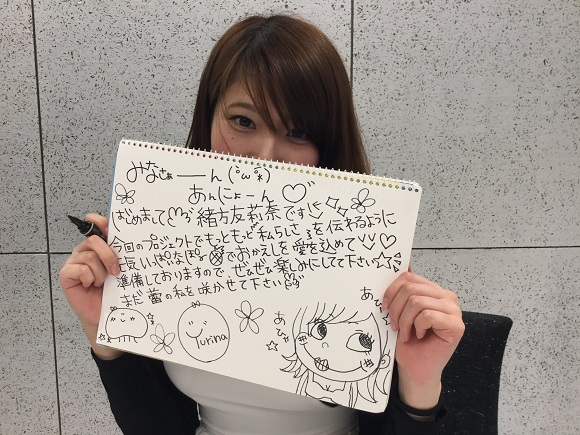 みなさぁーーん(°ω°)
あんにょーーん♡
はじめまして 緒方友莉奈です
今回のプロジェクトでもっともっと私らしさを伝わるように
元気いっぱい でおかえしを愛を込めて♡♡
準備しておりますので、ぜひぜひ楽しみにしてて下さい☆
まだ蕾の私を咲かせて下さい
あひょ
あひゃ
Yurina